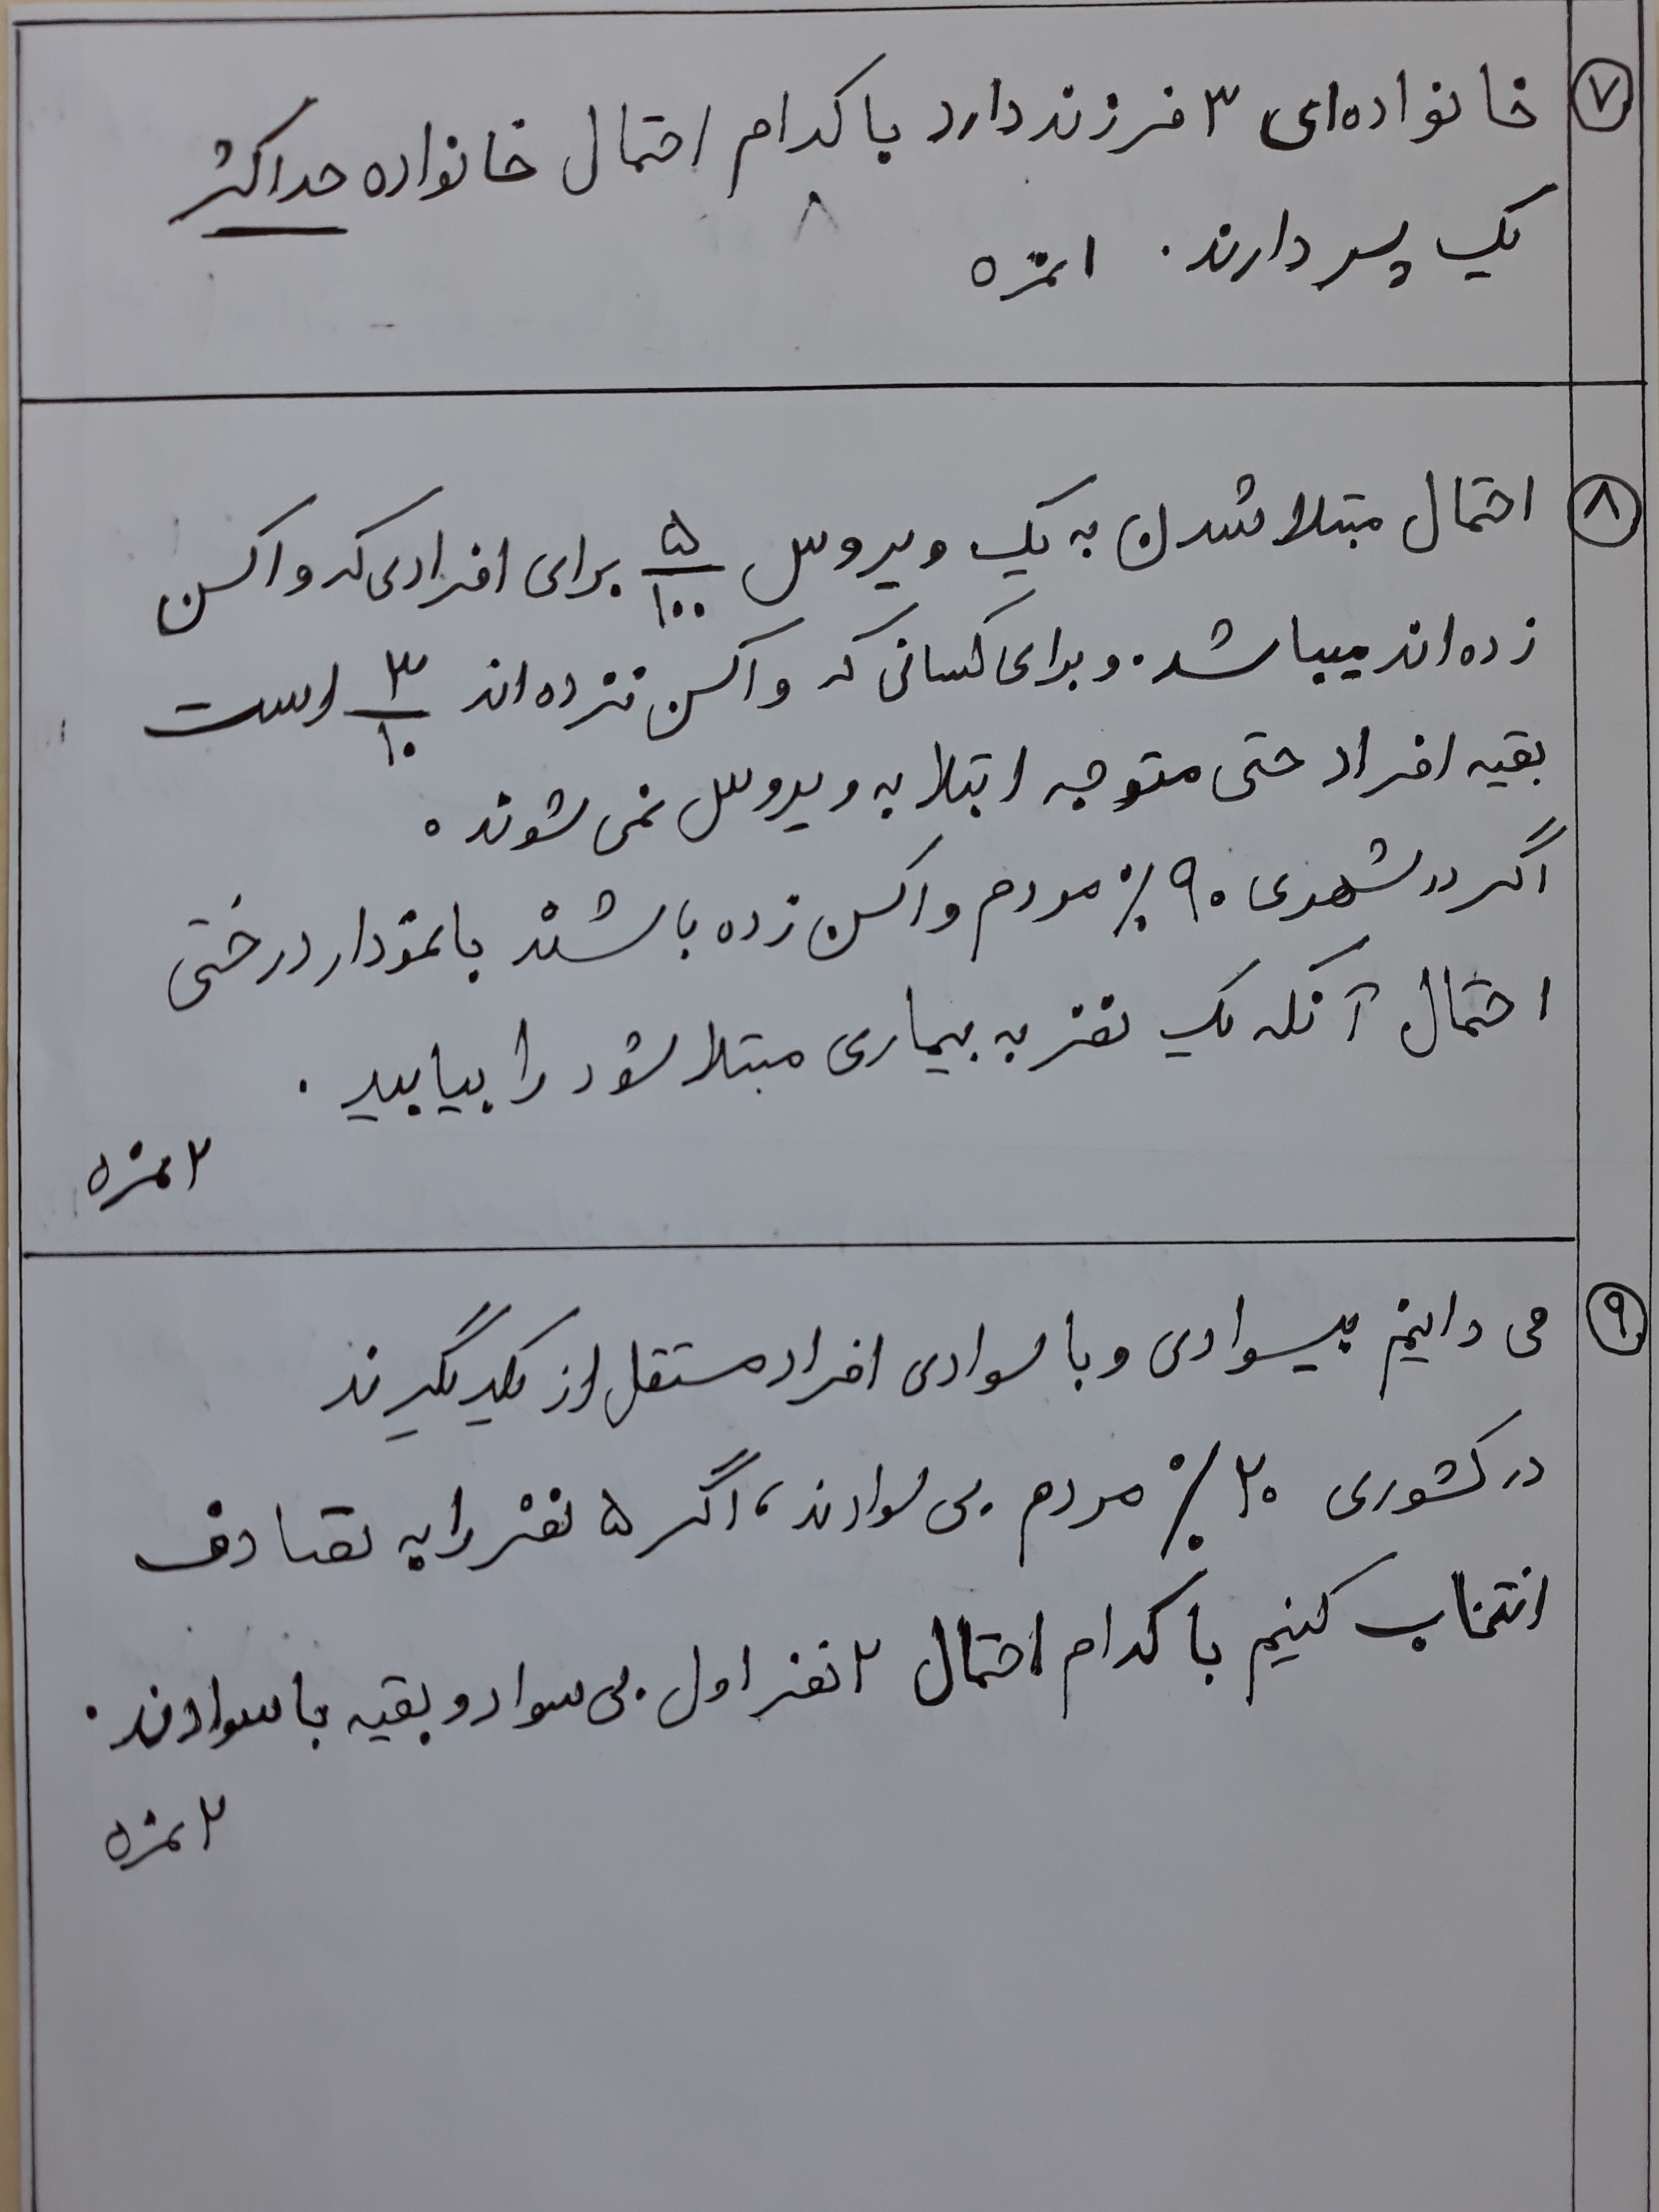 ۷
خانواده‌ای ۳ فرزند دارد با کدام احتمال خانواده حداکثر
یک پسر دارند. ۱ نمره
۸
احتمال مبتلا شدن به یک ویروس ۵/۱۰۰ برای افرادی که واکسن
زده‌اند میباشد. و برای کسانی که واکسن نزده‌اند ۳/۱۰ است
بقیه افراد حتی متوجه ابتلا به ویروس نمی‌شوند.
اگر در شهری ۹۰٪ مردم واکسن زده باشند با نمودار درختی
احتمال آنکه یک نفر به بیماری مبتلا شود را بیابید.
۲ نمره
۹
می دانیم بیسوادی و با سوادی افراد مستقل از یکدیگرند
در کشوری ۲۰٪ مردم بی سوادند، اگر ۵ نفر را به تصادف
انتخاب کنیم با کدام احتمال ۲ نفر اول بی سواد و بقیه با سوادند.
۲ نمره